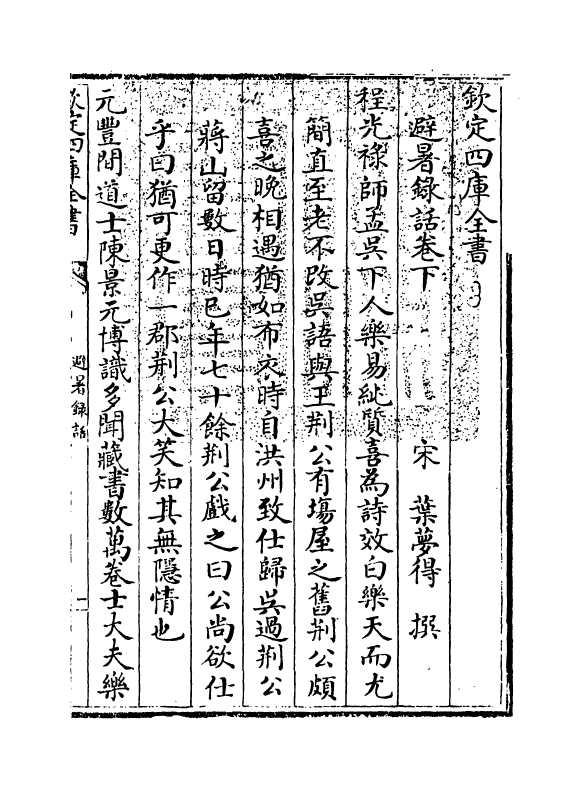 欽定四庫全書
避暑錄話卷下
宋 葉夢得 撰
程光祿師孟吳下人樂易純質喜為詩效白樂天而尤
簡直至老不改吳語與王荆公有場屋之舊荆公頗
喜之晚相遇猶如布衣時自洪州致仕歸吳過荆公
蔣山留數日時巳年七十餘荆公戲之曰公尚欲仕
乎曰猶可更作一郡荆公大笑知其無隱情也
元豐間道士陳景元博識多聞藏書數萬卷士大夫樂
欽定四庫全書
避暑錄話